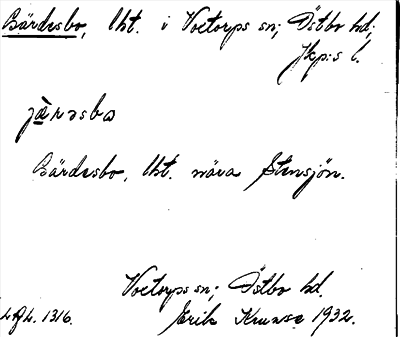 Bärdesbo, lht. i Voxtorps sn; Östbo hd;
Jkp:s l.
jæ̀rəsbo
Bärdesbo, lht. nära Stensjön.
Voxtorps sn; Östbo hd.
Erik 1932.
1316.